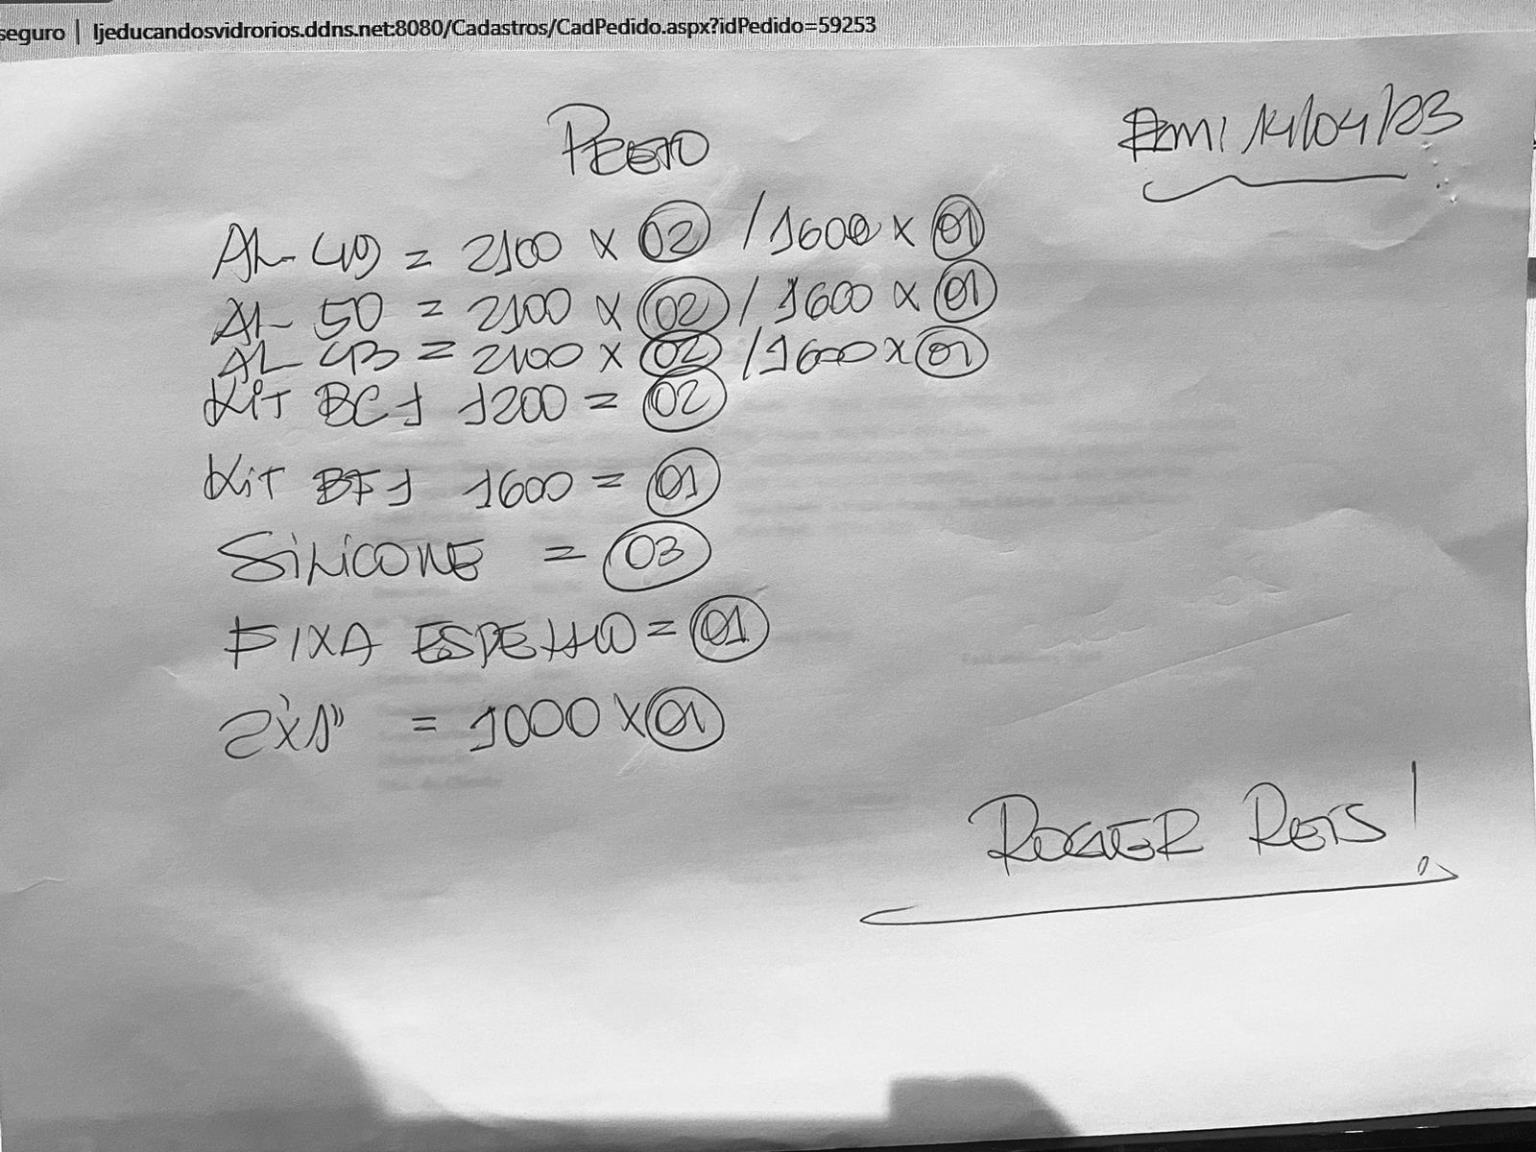 seguro | ljeducandosvidrorios.ddns.net:8080/Cadastros/CadPedido.aspx?idPedido=59253
PRETO
14/04/23
AL-40 = 2100 x 02 / 1600 x 01
AL- 50 = 2100 x 02 / 1600 x 01
AL 43 = 2100 x 02 / 1600 x 01
KiT BC1 1200 = 02
KiT BF1 1600 = 01
SiLiCONE = 03
FIXA ESPELHO = 01
2x1" = 1000 x 01
ROGER REIS!